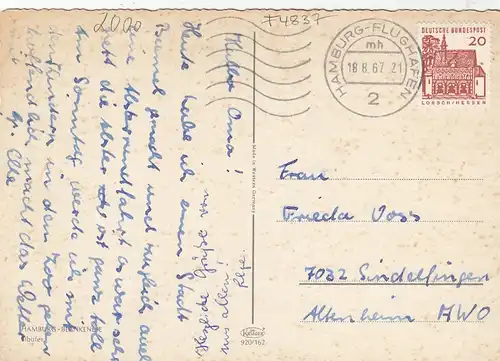 2000
F4837
HAMBURG-FLUGHAFEN
mh
18.8.67 21
2
DEUTSCHE BUNDESPOST
20
LORSCH/HESSEN
Liebe Oma!
Heute habe ich einen Stadt
Bummel gemacht und zugleich auch
eine Alsterrundfahrt es war sehr
nett die Alster ist ganz toll
am Sonntag werde ich mit
den Kindern in den Zoo gehen
hoffentlich macht das Wetter
Elke
Herzliche Grüße von
uns allen
Frau
Frieda Voss
7032 Sindelfingen
Altenheim AWO
HAMBURG-BLANKENESE
Made in Western Germany
Krüger
920/162